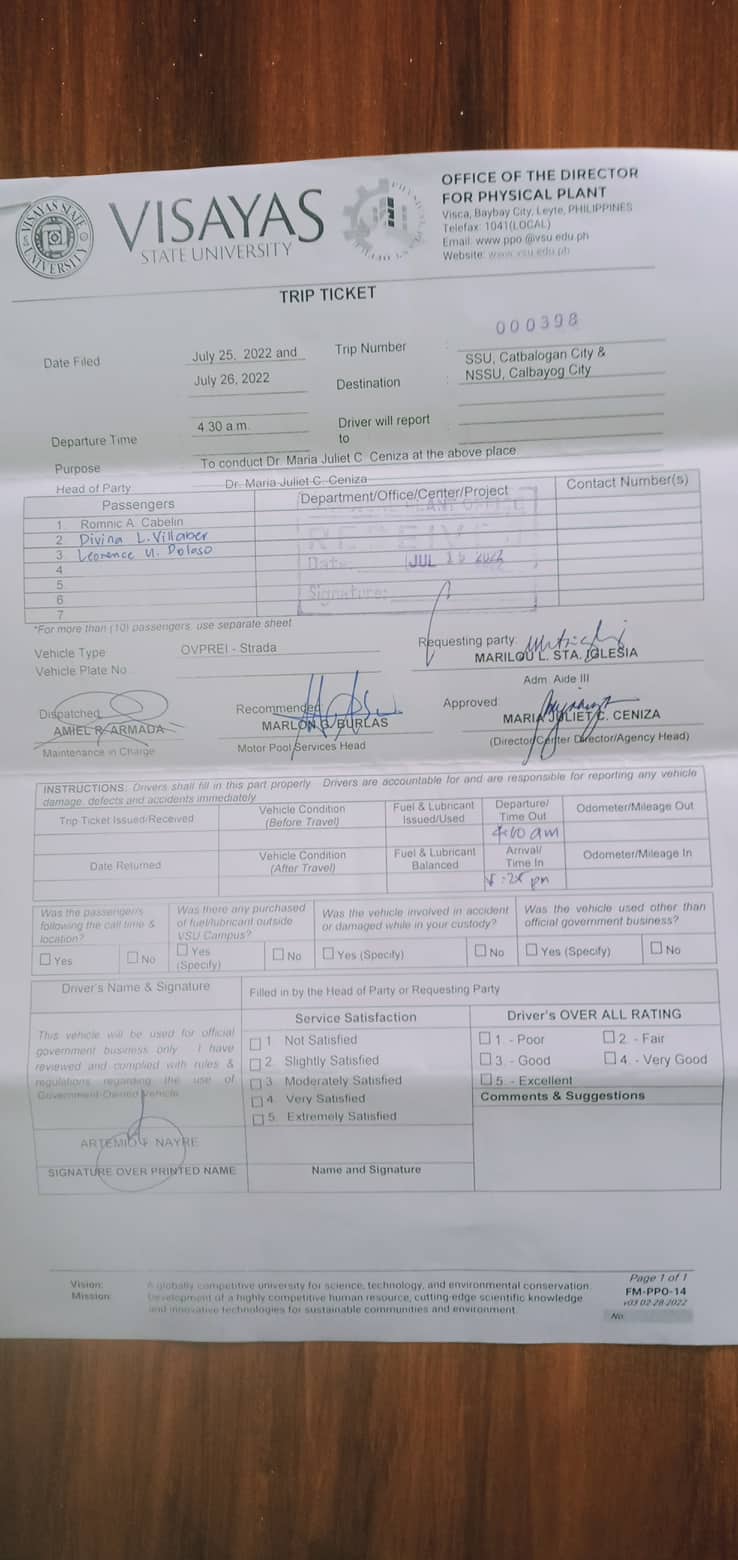 VISAYAS STATE UNIVERSITY
VISAYAS
STATE UNIVERSITY
OFFICE OF THE DIRECTOR
FOR PHYSICAL PLANT
Visca, Baybay City, Leyte, PHILIPPINES
Telefax: 1041(LOCAL)
Email: www.ppo @vsu.edu.ph
Website: www.vsu.edu.ph
TRIP TICKET
000398
Date Filed July 25, 2022 and Trip Number
July 26, 2022 Destination : SSU, Catbalogan City &
NSSU, Calbayog City
Departure Time 4:30 a.m. Driver will report
to
Purpose To conduct Dr. Maria Juliet C. Ceniza at the above place
Head of Party Dr. Maria Juliet C. Ceniza
Passengers Department/Office/Center/Project Contact Number(s)
1. Romnic A. Cabelin
2 Divina L. Villaber
3
4
5
6
7
RECEIVED
Date: JUL 2022
Signature:
*For more than (10) passengers, use separate sheet
Vehicle Type OVPREI - Strada Requesting party:
Vehicle Plate No. MARILOU L. STA. IGLESIA
Adm. Aide III
Dispatched Recommended Approved
AMIEL R. ARMADA MARLON G. BURLAS MARIA JULIET C. CENIZA
Maintenance in Charge Motor Pool Services Head (Director/Center Director/Agency Head)
INSTRUCTIONS: Drivers shall fill in this part properly. Drivers are accountable for and are responsible for reporting any vehicle
damage, defects and accidents immediately
Trip Ticket Issued/Received Vehicle Condition (Before Travel) Fuel & Lubricant Issued/Used Departure/ Time Out Odometer/Mileage Out
am
Date Returned Vehicle Condition (After Travel) Fuel & Lubricant Balanced Arrival/ Time In Odometer/Mileage In
pm
Was the passenger/s following the call time & location?
☐ Yes ☐ No
Was there any purchased of fuel/lubricant outside VSU Campus?
☐ Yes (Specify) ☐ No
Was the vehicle involved in accident or damaged while in your custody?
☐ Yes (Specify) ☐ No
Was the vehicle used other than official government business?
☐ Yes (Specify) ☐ No
Driver's Name & Signature Filled in by the Head of Party or Requesting Party
This vehicle will be used for official
government business only. I have
reviewed and complied with rules &
regulations regarding the use of
Government-Owned Vehicle
ARTEMIO F. NAYRE
SIGNATURE OVER PRINTED NAME
Service Satisfaction
☐ 1 Not Satisfied
☐ 2. Slightly Satisfied
☐ 3. Moderately Satisfied
☐ 4. Very Satisfied
☐ 5. Extremely Satisfied
Name and Signature
Driver's OVER ALL RATING
☐ 1. - Poor ☐ 2. - Fair
☐ 3. - Good ☐ 4. - Very Good
☐ 5. - Excellent
Comments & Suggestions
Vision: A globally competitive university for science, technology, and environmental conservation.
Mission: Development of a highly competitive human resource, cutting-edge scientific knowledge
and innovative technologies for sustainable communities and environment.
Page 1 of 1
FM-PPO-14
v03 02-28-2022
No.